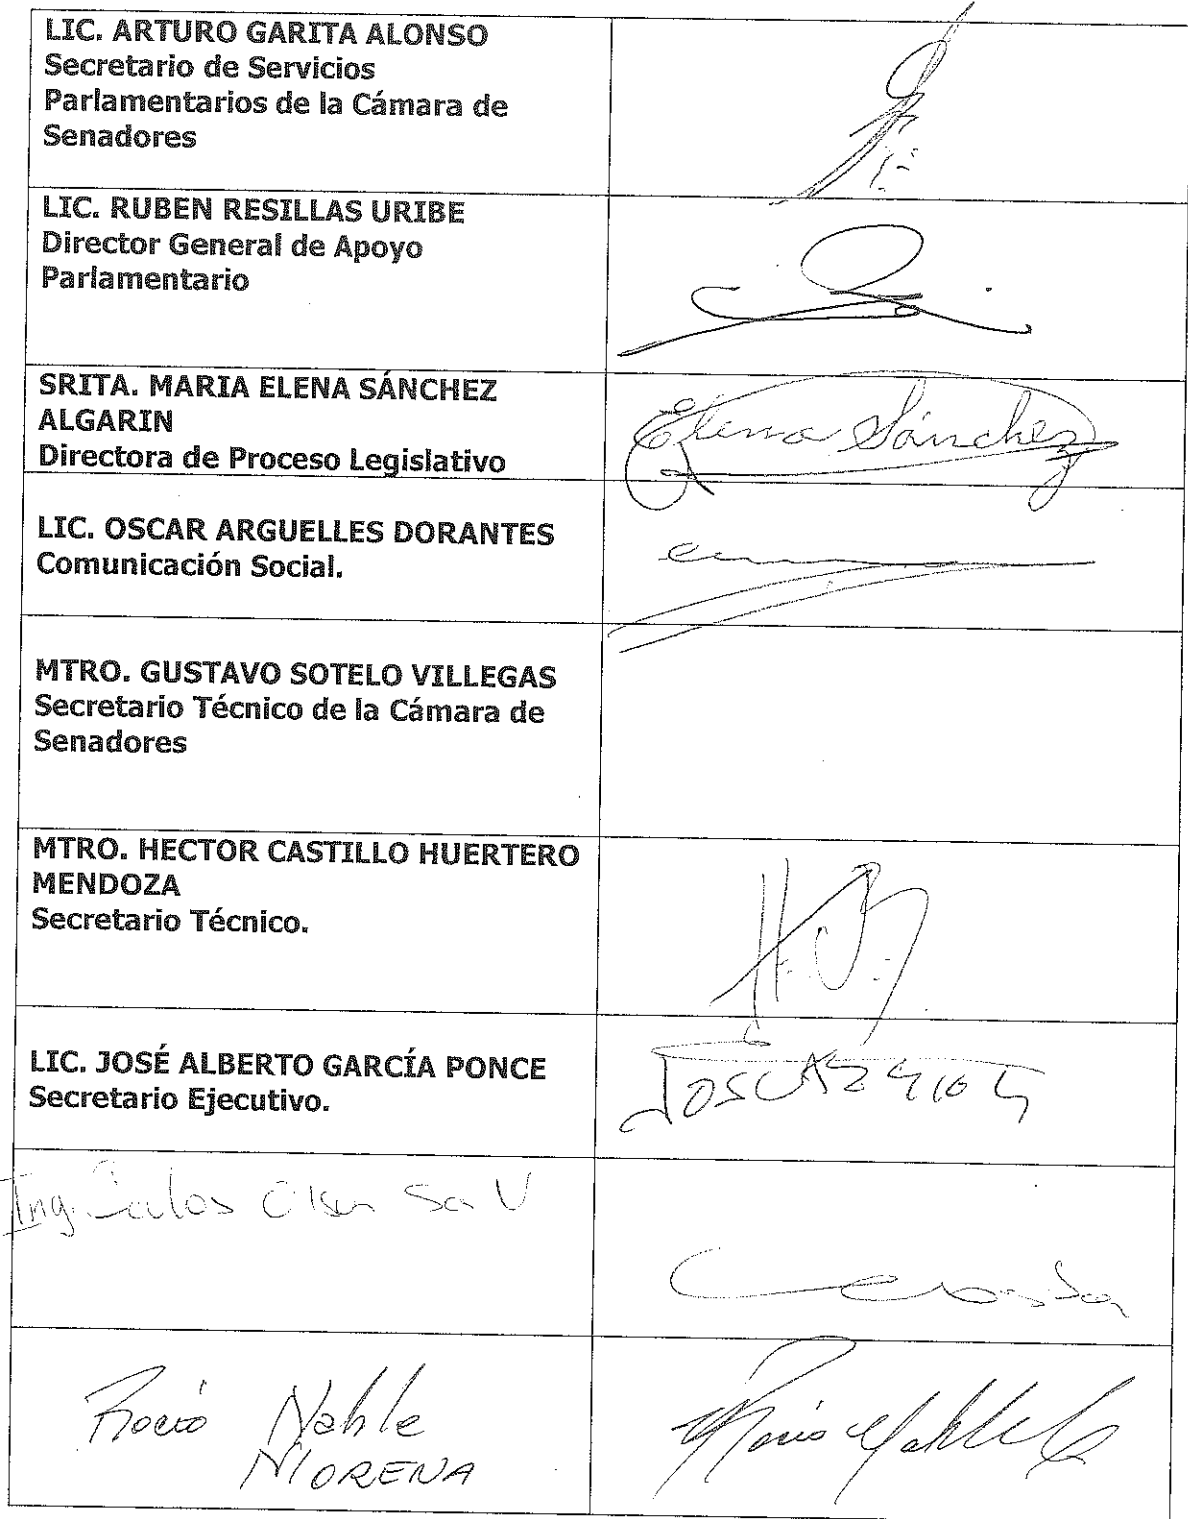 LIC. ARTURO GARITA ALONSO
Secretario de Servicios
Parlamentarios de la Cámara de
Senadores
LIC. RUBEN RESILLAS URIBE
Director General de Apoyo
Parlamentario
SRITA. MARIA ELENA SÁNCHEZ
ALGARIN
Directora de Proceso Legislativo
Elena Sánchez
LIC. OSCAR ARGUELLES DORANTES
Comunicación Social.
MTRO. GUSTAVO SOTELO VILLEGAS
Secretario Técnico de la Cámara de
Senadores
MTRO. HECTOR CASTILLO HUERTERO
MENDOZA
Secretario Técnico.
LIC. JOSÉ ALBERTO GARCÍA PONCE
Secretario Ejecutivo.
Ing. Carlos
Rocío Nahle
MORENA
Rocio Nahle